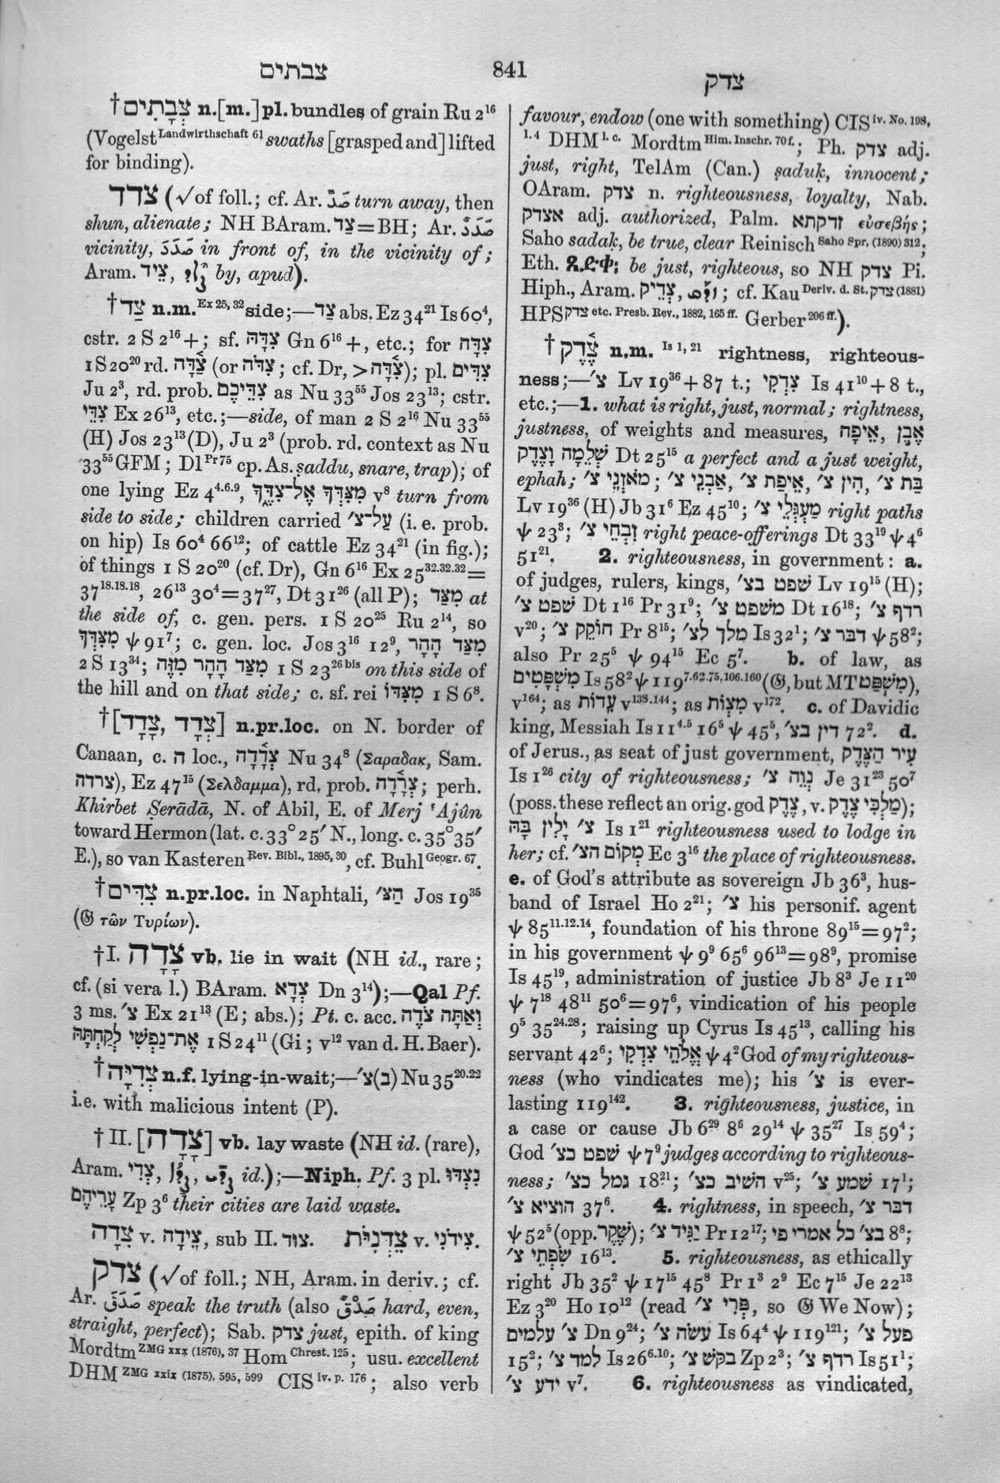 צבתים
841
צדק
†צְבָתִים n.[m.]pl. bundles of grain Ru 2¹⁶
(Vogelst Landwirthschaft 61 swaths [grasped and] lifted
for binding).
צדד (√of foll.; cf. Ar. صَدَّ turn away, then
shun, alienate; NH BAram. צַד=BH; Ar. صَدَدٌ
vicinity, صَدَدَ in front of, in the vicinity of;
Aram. צֵיד, by, apud).
†צַד n.m. Ex 25, 32 side;—צַד abs. Ez 34²¹ Is 60⁴,
cstr. 2 S 2¹⁶+; sf. צִדָּהּ Gn 6¹⁶+, etc.; for צִדָּה
1 S 20²⁰ rd. צִדָּהֿ (or צִדֹּה; cf. Dr, > צִדָּהֿ); pl. צִדִּים
Ju 2³, rd. prob. צִדֵּיכֶם as Nu 33⁵⁵ Jos 23¹³; cstr.
צִדֵּי Ex 26¹³, etc.;—side, of man 2 S 2¹⁶ Nu 33⁵⁵
(H) Jos 23¹³(D), Ju 2³ (prob. rd. context as Nu
33⁵⁵ GFM; Dl Pr 75 cp. As. ṣaddu, snare, trap); of
one lying Ez 4⁴·⁶·⁹, מִצִּדְּךָ אֶל־צִדֶּךָ v⁸ turn from
side to side; children carried עַל־צ׳ (i. e. prob.
on hip) Is 60⁴ 66¹²; of cattle Ez 34²¹ (in fig.);
of things 1 S 20²⁰ (cf. Dr), Gn 6¹⁶ Ex 25³²·³²·³²=
37¹⁸·¹⁸·¹⁸, 26¹³ 30⁴=37²⁷, Dt 31²⁶ (all P); מִצַּד at
the side of, c. gen. pers. 1 S 20²⁵ Ru 2¹⁴, so
מִצִּדְּךָ ψ 91⁷; c. gen. loc. Jos 3¹⁶ 12⁹, מִצַּד הָהָר
2 S 13³⁴; מִצַּד הָהָר מִזֶּה 1 S 23²⁶ ᵇⁱˢ on this side of
the hill and on that side; c. sf. rei מִצִּדּוֹ 1 S 6⁸.
†[צְדָד, צְדַד] n.pr.loc. on N. border of
Canaan, c. ה loc., צְדָדָה Nu 34⁸ (Σαραδακ, Sam.
צרדה), Ez 47¹⁵ (Σελδαμμα), rd. prob. צְרָדָה; perh.
Khirbet Ṣerādā, N. of Abil, E. of Merj ʿAjûn
toward Hermon (lat. c. 33° 25′ N., long. c. 35° 35′
E.), so van Kasteren Rev. Bibl., 1895, 30, cf. Buhl Geogr. 67.
†צִדִּים n.pr.loc. in Naphtali, הַצּ׳ Jos 19³⁵
(𝔊 τῶν Τυρίων).
†I. צָדָה vb. lie in wait (NH id., rare;
cf. (si vera l.) BAram. צְדָא Dn 3¹⁴);—Qal Pf.
3 ms. צ׳ Ex 21¹³ (E; abs.); Pt. c. acc. וְאַתָּה צֹדֶה
אֶת־נַפְשִׁי לְקַחְתָּהּ 1 S 24¹¹ (Gi; v¹² van d. H. Baer).
†צְדִיָּה n.f. lying-in-wait;—(בִּ)צ׳ Nu 35²⁰·²²
i.e. with malicious intent (P).
†II. [צָדָה] vb. lay waste (NH id. (rare),
Aram. צְדִי, id.);—Niph. Pf. 3 pl. נִצְדּוּ
עָרֵיהֶם Zp 3⁶ their cities are laid waste.
צֵדָה v. צֵידָה, sub II. צוד. צֵדְנִיּוֹת v. צִידֹנִי.
צדק (√of foll.; NH, Aram. in deriv.; cf.
Ar. صَدَقَ speak the truth (also صَدْقٌ hard, even,
straight, perfect); Sab. צדק just, epith. of king
Mordtm ZMG xxx (1876), 37 Hom Chrest. 125; usu. excellent
DHM ZMG xxix (1875), 595, 599 CIS iv. p. 176; also verb
favour, endow (one with something) CIS iv. No. 198,
1. 4 DHM l. c. Mordtm Him. Inschr. 70 f.; Ph. צדק adj.
just, right, TelAm (Can.) ṣaduḳ, innocent;
OAram. צדק n. righteousness, loyalty, Nab.
אצדק adj. authorized, Palm. זדקתא εὐσεβής;
Saho sadaḳ, be true, clear Reinisch Saho Spr. (1890) 312;
Eth. ጸድቀ፡ be just, righteous, so NH צדק Pi.
Hiph., Aram. צְדֵיק, ; cf. Kau Deriv. d. St. צדק (1881)
HPS צדק etc. Presb. Rev., 1882, 165 ff. Gerber 206 ff.).
†צֶדֶק n.m. Is 1, 21 rightness, righteous-
ness;—צ׳ Lv 19³⁶+87 t.; צִדְקִי Is 41¹⁰+8 t.,
etc.;—1. what is right, just, normal; rightness,
justness, of weights and measures, אֶבֶן, אֵיפָה
שְׁלֵמָה וָצֶדֶק Dt 25¹⁵ a perfect and a just weight,
ephah; מֹאזְנֵי צ׳; אַבְנֵי צ׳, אֵיפַת צ׳, הִין צ׳, בַּת צ׳
Lv 19³⁶ (H) Jb 31⁶ Ez 45¹⁰; מַעְגְּלֵי צ׳ right paths
ψ 23³; זִבְחֵי צ׳ right peace-offerings Dt 33¹⁹ ψ 4⁶
51²¹. 2. righteousness, in government: a.
of judges, rulers, kings, שׁפט בצ׳ Lv 19¹⁵ (H);
שׁפט צ׳ Dt 1¹⁶ Pr 31⁹; משׁפט צ׳ Dt 16¹⁸; רדף צ׳
v²⁰; חוֹקֵק צ׳ Pr 8¹⁵; מלך לצ׳ Is 32¹; דבר צ׳ ψ 58²;
also Pr 25⁵ ψ 94¹⁵ Ec 5⁷. b. of law, as
מִשְׁפָּטִים Is 58² ψ 119⁷·⁶²·⁷⁵·¹⁰⁶·¹⁶⁰ (𝔊, but MT מִשְׁפַּט),
v¹⁶⁴; as עֵדוֹת v¹³⁸·¹⁴⁴; as מִצְוֹת v¹⁷². c. of Davidic
king, Messiah Is 11⁴·⁵ 16⁵ ψ 45⁵, דין בצ׳ 72². d.
of Jerus., as seat of just government, עִיר הַצֶּדֶק
Is 1²⁶ city of righteousness; נְוֵה צ׳ Je 31²³ 50⁷
(poss. these reflect an orig. god צֶדֶק, v. מַלְכִּי צֶדֶק);
צ׳ יָלִין בָּהּ Is 1²¹ righteousness used to lodge in
her; cf. מְקוֹם הצ׳ Ec 3¹⁶ the place of righteousness.
e. of God's attribute as sovereign Jb 36³, hus-
band of Israel Ho 2²¹; צ׳ his personif. agent
ψ 85¹¹·¹²·¹⁴, foundation of his throne 89¹⁵=97²;
in his government ψ 9⁹ 65⁶ 96¹³=98⁹, promise
Is 45¹⁹, administration of justice Jb 8³ Je 11²⁰
ψ 7¹⁸ 48¹¹ 50⁶=97⁶, vindication of his people
9⁵ 35²⁴·²⁸; raising up Cyrus Is 45¹³, calling his
servant 42⁶; אֱלֹהֵי צִדְקִי ψ 4² God of my righteous-
ness (who vindicates me); his צ׳ is ever-
lasting 119¹⁴². 3. righteousness, justice, in
a case or cause Jb 6²⁹ 8⁶ 29¹⁴ ψ 35²⁷ Is 59⁴;
God שׁפט כצ׳ ψ 7⁹ judges according to righteous-
ness; גמל כצ׳ 18²¹; השׁיב כצ׳ v²⁵; שׁמע צ׳ 17¹;
הוציא צ׳ 37⁶. 4. rightness, in speech, דבר צ׳
ψ 52⁵ (opp. שֶׁקֶר); יַגִּיד צ׳ Pr 12¹⁷; בצ׳ כל אמרי פי 8⁸;
שִׂפְתֵי צ׳ 16¹³. 5. righteousness, as ethically
right Jb 35² ψ 17¹⁵ 45⁸ Pr 1³ 2⁹ Ec 7¹⁵ Je 22¹³
Ez 3²⁰ Ho 10¹² (read פְּרִי צ׳, so 𝔊 We Now);
צ׳ עלמים Dn 9²⁴; עשׂה צ׳ Is 64⁴ ψ 119¹²¹; פעל צ׳
15²; למד צ׳ Is 26⁹·¹⁰; בַּקֵּשׁ צ׳ Zp 2³; רדף צ׳ Is 51¹;
ידע צ׳ v⁷. 6. righteousness as vindicated,